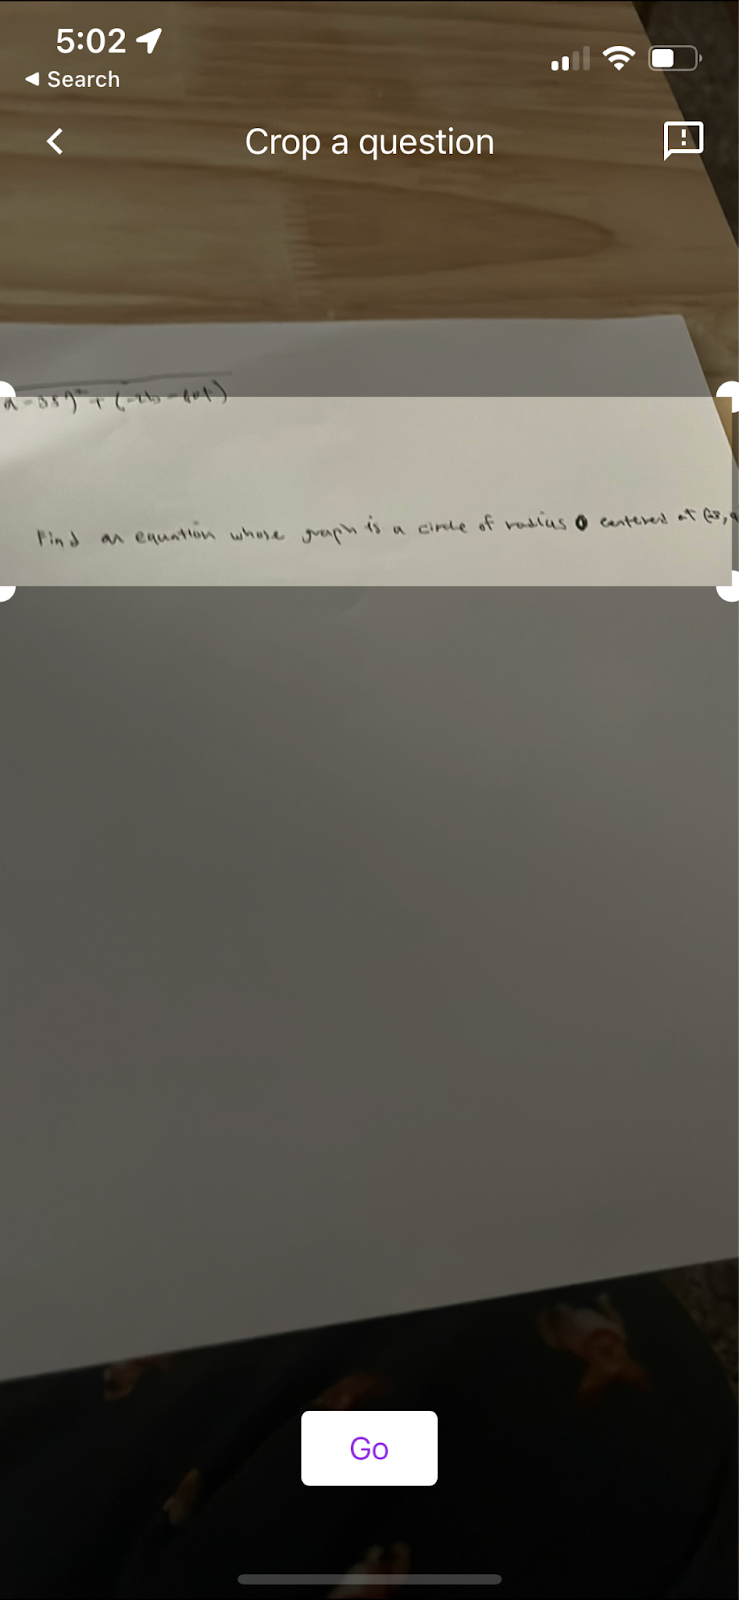 5:02
Search
Crop a question
Find an equation whose graph is a circle of radius 0 centered at
Go